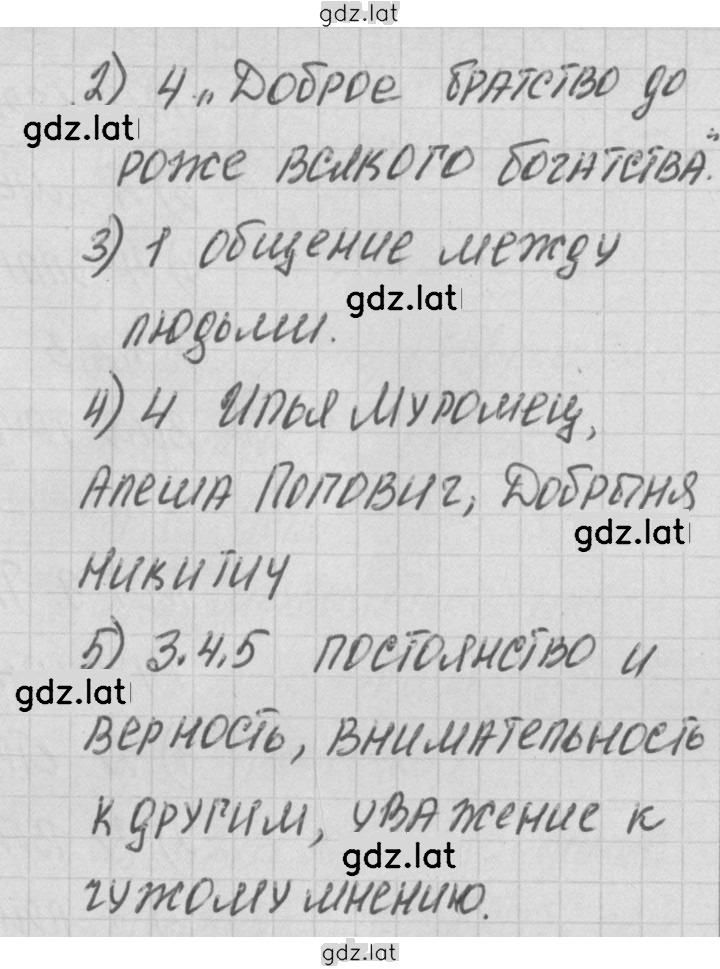 gdz.lat
2) 4 „Доброе братство до
gdz.lat
роже всякого богатства."
3) 1 общение между
gdz.lat
людьми.
4) 4 Илья Муромец,
Алеша Попович, Добрыня
gdz.lat
Никитич
5) 3.4.5 постоянство и
gdz.lat
верность, внимательность
к другим, уважение к
gdz.lat
чужому мнению.
gdz.lat